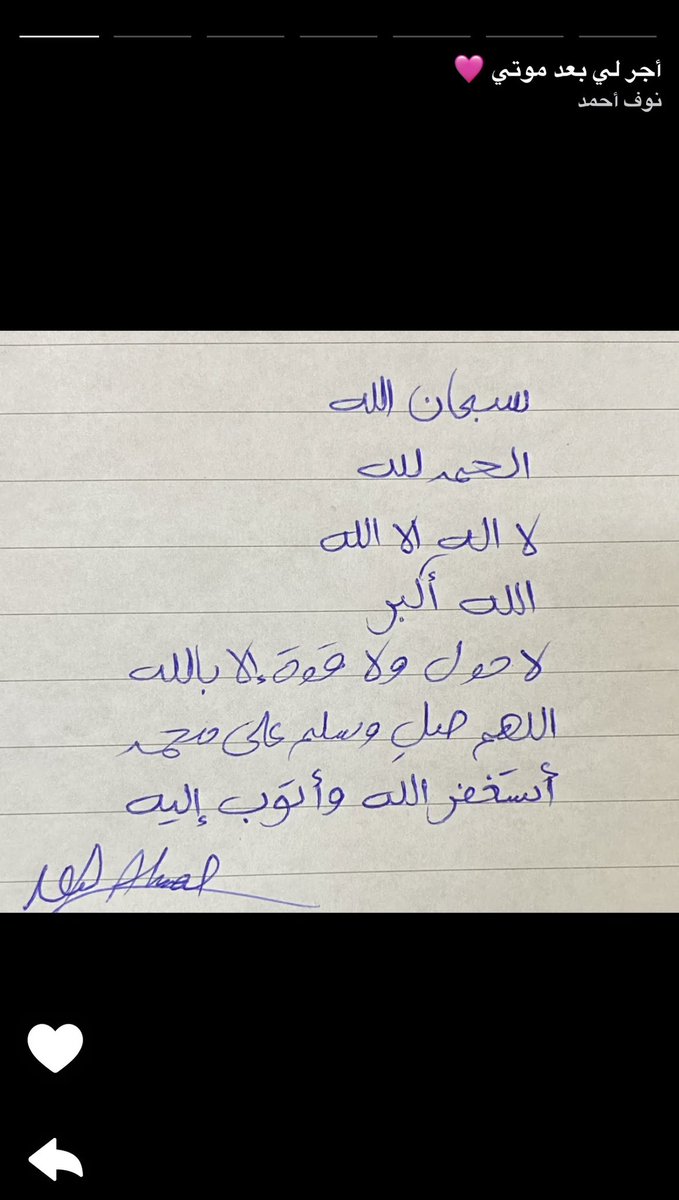 أجر لي بعد موتي 🩷
نوف أحمد
سبحان الله
الحمد لله
لا اله الا الله
الله أكبر
لا حول ولا قوة إلا بالله
اللهم صلِ وسلم على محمد
أستغفر الله وأتوب إليه
Ahmad